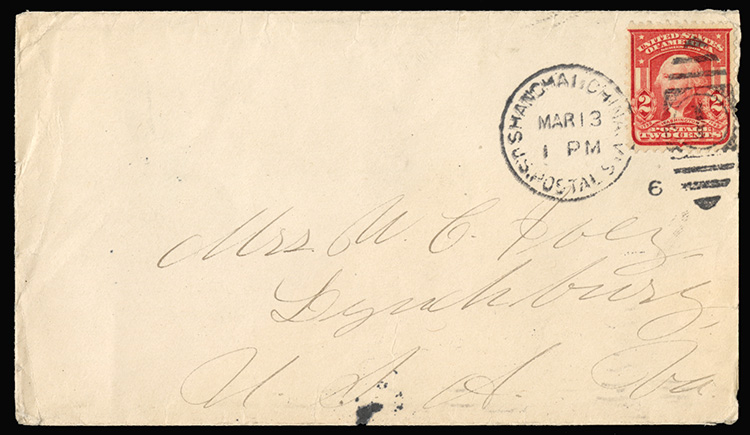 UNITED STATES
OF AMERICA
2 2
POSTAGE
TWO CENTS
SHANGHAI CHINA
MAR 13
1 PM
U.S. POSTAL STA.
6
Mrs. W. C. Ivey,
Lynchburg,
U. S. A. Va